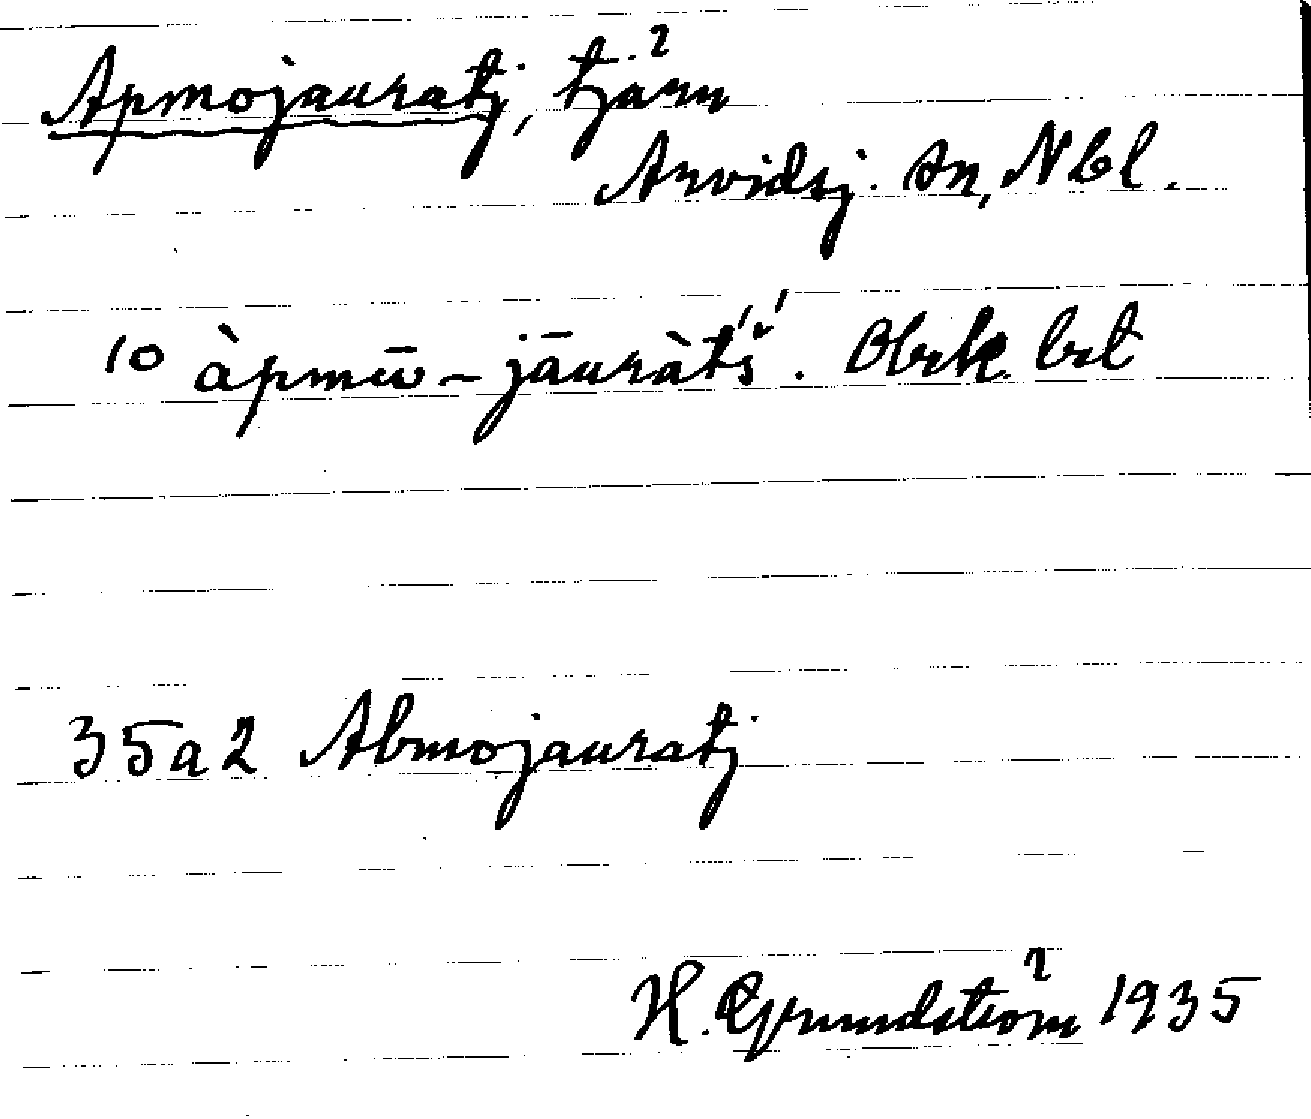 Apmojauratj, tjärn
Arvidsj. sn, Nbl.
10 àpmō-jāuràt́š́. Obek. bet
35a2 Abmojauratj
H. Grundström 1935